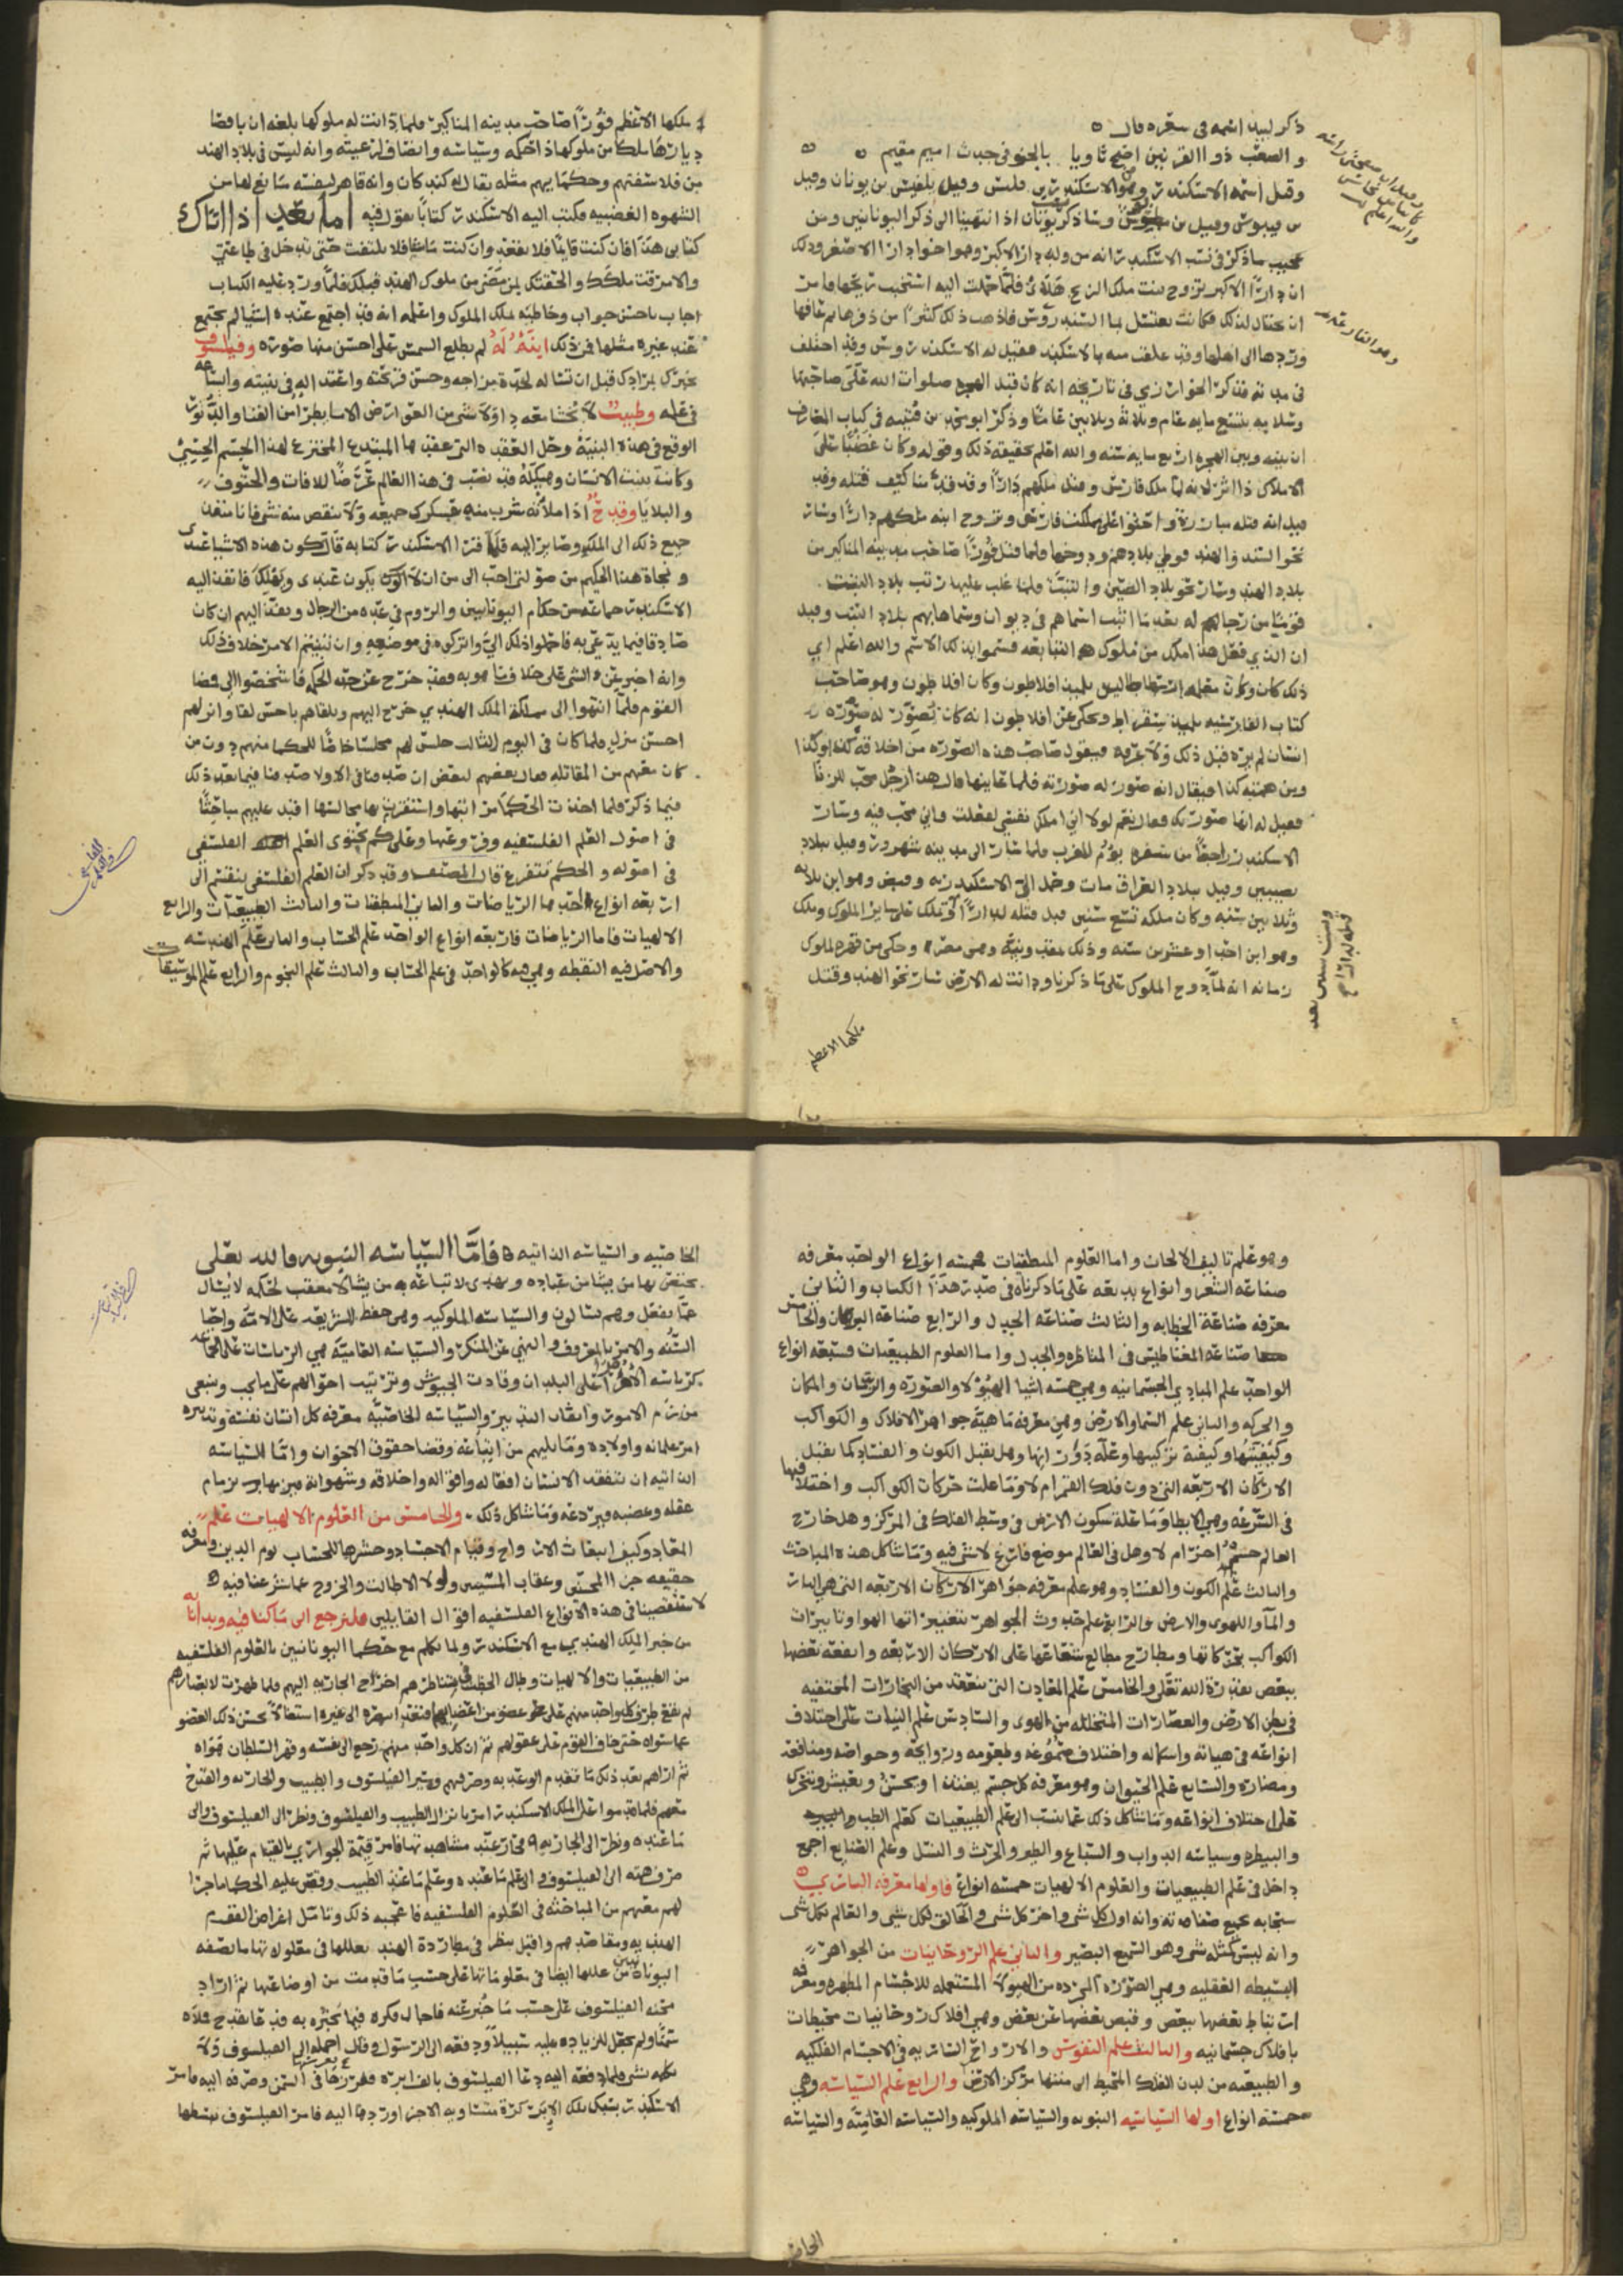 ذكر لبيد اسمه في شعره قال
والصعب ذو القرنين اضحى ثاويا بالحنو في جدث اميم مقيم
وقيل اسمه الاسكندر وهو الاسكندر بن فلبس وقيل بلفيس بن يونان وقيل
وسار ذكر يونان اذا انتهينا الى ذكر اليونانيين ومن
عجيب ما ذكر في نسب الاسكندر انه من ولد دارا الاكبر وهو اخو دارا الاصغر وذلك
ان دارا الاكبر تزوج ببنت ملك الزنج هلاى فلما حملت اليه استخبث ريحها فامر
ان يحتال لذلك فكانت تغتسل بماء السندروس فاذهب ذلك كثيرا من ذفرها ثم عافها
وردها الى اهلها وقد علقت منه بالاسكندر فقيل له الاسكندروس وقد اختلف
في مدته فذكر الخوارزمي في تاريخه انه كان قبل الهجرة صلوات الله على صاحبها
وسلامه بتسع مايه عام وثلاثة وثلاثين عاما وذكر ابو محمد بن قتيبه في كتاب المعارف
ان بينه وبين الهجره اربع مايه سنه والله اعلم بحقيقة ذلك وقوله وكان غضبا على
الاملاك ذا اثر لانه لما ملك فارس وقتل ملكهم دارا وقد قدمنا كيف قتله وقد
قيل انه قتله مبارزة واحتوا على مملكت فارس وتزوج ابنه ملكهم دارا وسار
نحو السند والهند فوطي بلادهم ودوخها فلما قتل فورا صاحب مدينه المناكير من
بلاد الهند وسار نحو بلاد الصين والتبت فلما غلب عليها رتب بلاد التبت
قوما من رجاله بعد ما اثبت اسماهم في ديوان وسماها بهم بلاد التبت وقيل
ان الذي فعل هذا ملك من ملوك التبابعه فسموا بذلك الاسم والله اعلم اي
ذلك كان وكان معلمه ارسطاطاليس تلميذ افلاطون وكان افلاطون وهو صاحب
كتاب الفارسه تلميذ سقراط ويحكى عن افلاطون انه كان يصور له صوره
انسان لم يره قبل ذلك ولا عرفه فيقول صاحب هذه الصوره من اخلاقه كذا وكذا
ومن همته كذا فيقال انه صور له صورته فلما عاينها قال هذا رجل محب للزنا
فقيل له انها صورتك فقال نعم لولا اني املك نفسي لفعلت واني محب فيه وسار
الاسكندر راجعا من سفره يؤم المغرب فلما صار الى مدينه شهرزور وقيل ببلاد
نصيبين وقيل ببلاد العراق مات وحمل الى الاسكندريه وقبض وهو ابن ثلاثه
وثلاثين سنه وكان ملكه تسع سنين قبل قتله لدارا ثم تملك على ساير الملوك وملك
وهو ابن احد وعشرين سنه وذلك بمقدونيه وهي مصر وحكى من قهره لملوك
زمانه انه لما دوخ الملوك على ما ذكرنا ودانت له الارض سار نحو الهند وقتل
ملكها الاعظم
ملكها الاعظم فورا صاحب مدينه المناكير فلما دانت له ملوكها بلغه ان باقصا
ديارها ملكا من ملوكها ذا حكمه وسياسه وانصاف لرعيته وانه ليس في بلاد الهند
من فلاسفتهم وحكمايهم مثله يقال له كند كان وانه قاهر لنفسه مانع لها من
الشهوه الغضبيه فكتب اليه الاسكندر كتابا يقول فيه اما بعد اذا اتاك
كتابي هذا فان كنت قايما فلا تقعد وان كنت ماشيا فلا تلتفت حتى تدخل في طاعتي
والا مزقت ملكك والحقتك بمن مضى من ملوك الهند قبلك فلما ورد عليه الكتاب
اجاب باحسن جواب وخاطبه بملك الملوك واعلمه انه قد اجتمع عنده اشيا لم يجتمع
عند غيره مثلها فمن ذلك ابنة له لم تطلع الشمس على احسن منها صوره وفيلسوف
يخبرك بمرادك قبل ان تساله لحدة مزاجه وحسن قريحته واعتداله في بنيته واتساعه
في علمه وطبيب لا تخشا معه داء ولا شي من العوارض الا ما يطرا من الفنا والدثور
الواقع في هذه البنيه وحل العقده التي عقدها المبتدع المخترع لهذا الجسم الحسي
وكانت بنيت الانسان وهيكله قد نصب في هذا العالم غرضا للافات والحتوف
والبلايا وقدح اذا ملأته شرب منه عسكرك جميعه ولا ينقص منه شي فانا منفذ
جميع ذلك الى الملك وصاير اليه فلما قرا الاسكندر كتابه قال تكون هذه الاشيا عندى
ونجاة هذا الحكيم من صولتي احب الي من ان لا تكون عندى ويهلك فانفذ اليه
الاسكندر جماعه من حكام اليونانيين والروم في عده من الرجال وتقدم اليهم ان كان
صادقا فيما يدعي به فاحملوا ذلك الي واتركوه في موضعه وان تبينتم الامر خلاف ذلك
وانه اخبر عن الشي على خلاف ما هو به فقد خرج عن حد الحكمه فاشخصوا الي فمضا
القوم فلما انتهوا الى مملكة الملك الهندي خرج اليهم وتلقاهم باحسن لقا وانزلهم
احسن منزل فلما كان في اليوم الثالث جلس لهم مجلسا خاصا للحكما منهم دون من
كان معهم من المقاتله فقال بعضهم لبعض ان صدقنا في الاولا صدقنا فيما بعد ذلك
فيما ذكر فلما اخذت الحكما مراتبها واستقرت بها مجالسها اقبل عليهم مباحثا
في اصول العلم الفلسفيه وفروعها وعلى كم يحتوى العلم الفلسفي
في اصوله والحكم يتفرع قال المصنف وقد ذكر ان العلم الفلسفي ينقسم الى
اربعه انواع احدها الرياضات والثاني المنطقيات والثالث الطبيعيات والرابع
الالهيات فاما الرياضات فاربعه انواع الواحد علم الحساب والثاني علم الهندسه
والاصل فيه النقطه وهي فيه كالواحد في علم الحساب والثالث علم النجوم والرابع علم الموسيقا
وهو علم تاليف الالحان واما العلوم المنطقيات خمسه انواع الواحد معرفه
صناعه الشعر وانواع بديعه على ما ذكرناه في صدر هذا الكتاب والثاني
معرفه صناعة الخطابه والثالث صناعة الجدل والرابع صناعه البرهان والخامس
صناعه المغناطيس في المناظره والجدل واما العلوم الطبيعيات فسبعه انواع
الواحد علم المبادي الجسمانيه وهي خمسه اشيا الهيولا والصوره والزمان والمكان
والحركه والثاني علم السما والارض وهي معرفه ماهية جواهر الافلاك والكواكب
وكيفيتها وكيفية تركيبها وعلة دورانها وهل يقبل الكون والفساد كما يقبل
الاركان الاربعه التي دون فلك القمر ام لا وما علت حركات الكواكب واختلافها
في السرعه وهي الابطا وما علة سكون الارض في وسط الفلك في المركز وهل خارج
العالم جسم اخر ام لا وهل في العالم موضع فارغ لا شي فيه وما شاكل هذه المباحث
والثالث علم الكون والفساد وهو علم معرفه جواهر الاركان الاربعه التي هي النار
والمآ والهوى والارض والرابع علم حدوث الجواهر بتغييراتها الهوا وتاثيرات
الكواكب بحركاتها ومطارح مطالع شعاعاتها على الاركان الاربعه وانفعه بعضها
ببعض بقدرة الله تعلى والخامس علم المعادن التي تنعقد من البخارات المختفيه
في بطن الارض والعصارات المتخلله من الهوى والسادس علم النبات على اختلاف
انواعه في هياته واشكاله واختلاف صموغه وطعومه وروايحه وخواصه ومنافعه
ومضاره والسابع علم الحيوان وهو معرفه كل جسم يغتذا ويحس ويعيش ويتحرك
على اختلاف انواعه وما شاكل ذلك مما ينسب الى علم الطبيعيات كعلم الطب
والبيطره وسياسه الدواب والسباع والطير والحرث والنسل وعلم الصنايع اجمع
داخل في علم الطبيعيات والعلوم الالهيات خمسه انواع فاولها معرفه الباري
سبحانه بجميع صفاته وانه اول كل شي واخر كل شي والخالق لكل شي والعالم بكل شى
وانه ليس كمثله شى وهو السميع البصير والثاني علم الروحانيات من الجواهر
البسيطه العقليه وهي الصوره المجرده من الهيولا المستعمله للاجسام المطهره ومعرفه
ارتباط بعضها ببعض وفيض بعضها عن بعض وهي افلاك روحانيات محيطات
بافلاك جسمانيه والثالث علم النفوس والارواح الساريه في الاجسام الفلكيه
والطبيعيه من لدن الفلك المحيط الى منتها مركز الارض والرابع علم السياسه وهي
خمسه انواع اولها السياسه النبويه والسياسه الملوكيه والسياسه العاميه والسياسه
الخاصيه والسياسه الذاتيه فاما السياسه النبويه فالله تعلى
يختص بها من يشا من عباده ويهدى لاتباعه من يشا لا معقب لحكمه لا يسال
عما يفعل وهم يسالون والسياسه الملوكيه وهي حفظ الشريعه على الامه واحيا
السنه والامر بالمعروف والنهي عن المنكر والسياسه العاميه هي الرياسات على الجماعه
كرياسه الامرا على البلدان وقادت الجيوش وترتيب احوالهم على ما يجب وينبغى
من زم الامور واتقان التدبير والسياسه الخاصيه معرفه كل انسان نفسه وتدبيره
امر غلمانه واولاده وما يليهم من اتباعه وقضا حقوق الاخوان واما السياسه
الذاتيه ان يتفقد الانسان افعاله واقواله واخلاقه وشهواته فيزمها بزمام
عقله وغضبه فيردعه وما شاكل ذلك والخامس من العلوم الالهيات علم
المعاد وكيف انبعاث الارواح وقيام الاجساد وحشرها للحساب يوم الدين ومعرفه
حقيقه جزا المحسن وعقاب المسيين ولولا الاطالت والخروج عما شرعنا فيه
لاستقصينا في هذه الانواع الفلسفيه اقوال القايلين فلنرجع الى ما كنا فيه وبدأنا به
من خبر الملك الهندي مع الاسكندر ولما تكلم مع حكما اليونانيين بالعلوم الفلسفيه
من الطبيعيات والالهيات وطال الخطب في مناظرهم اخرج الجاريه اليهم فلما ظهرت لابصارهم
لم يقع طرف كل واحد منهم على عضو من اعضايها فتعدا بصره الى غيره استغالا بحسن ذلك العضو
عما سواه حتى خاف القوم على عقولهم ثم ان كل واحد منهم رجع الى نفسه وقهر السلطان هواه
ثم اراهم بعد ذلك ما تقدم الوعد به وصرفهم وسير الفيلسوف والطبيب والجاريه والقدح
معهم فلما قدموا على الملك الاسكندر امر بانزال الطبيب والفيلسوف ونظر الى الجاريه
فحار عند مشاهدتها فامر قيمة الجواري بالقيام عليها ثم
صرف همته الى الفيلسوف والى علم ما عنده وعلم ما عند الطبيب وقص عليه الحكما ما جرا
لهم معهم من المباحثه في العلوم الفلسفيه فاعجبه ذلك وتامل اغراض القوم
الهنديه ومقاصدهم واقبل ينظر في مطاردة الهند بعللها في معلولاتها وما يصفه
اليونانيين من عللها ايضا في معلولاتها على حسب ما قدمت من اوضاعها ثم اراد
محنه الفيلسوف على حسب ما خبر عنه فاجال فكره فيما يختبره به فدعا بقدح فملاه
سمنا ولم يجعل للزياده عليه سبيلا ودفعه الى الرسول وقال احمله الى الفيلسوف ولا
تكلمه بشى فلما دفعه اليه دعا الفيلسوف بالف ابره فغرزها في السمن وصرفه اليه فامر
الاسكندر بسبك تلك الابر كرة متساويه الاجزا وردها اليه فامر الفيلسوف ببسطها